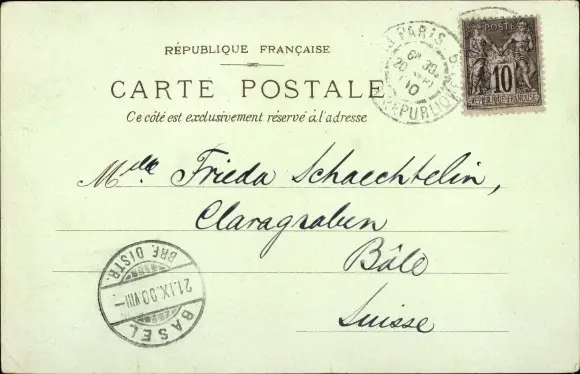 RÉPUBLIQUE FRANÇAISE
CARTE POSTALE
Ce côté est exclusivement réservé à l'adresse
PARIS
6E 30
10
REPUBLIQUE
POSTES
10
REPUBLIQUE FRANÇAISE
Mlle Frieda Schaechtelin,
Claragraben
Bâle
Suisse
BRF. DISTR.
21.IX.00.VIII—
BASEL